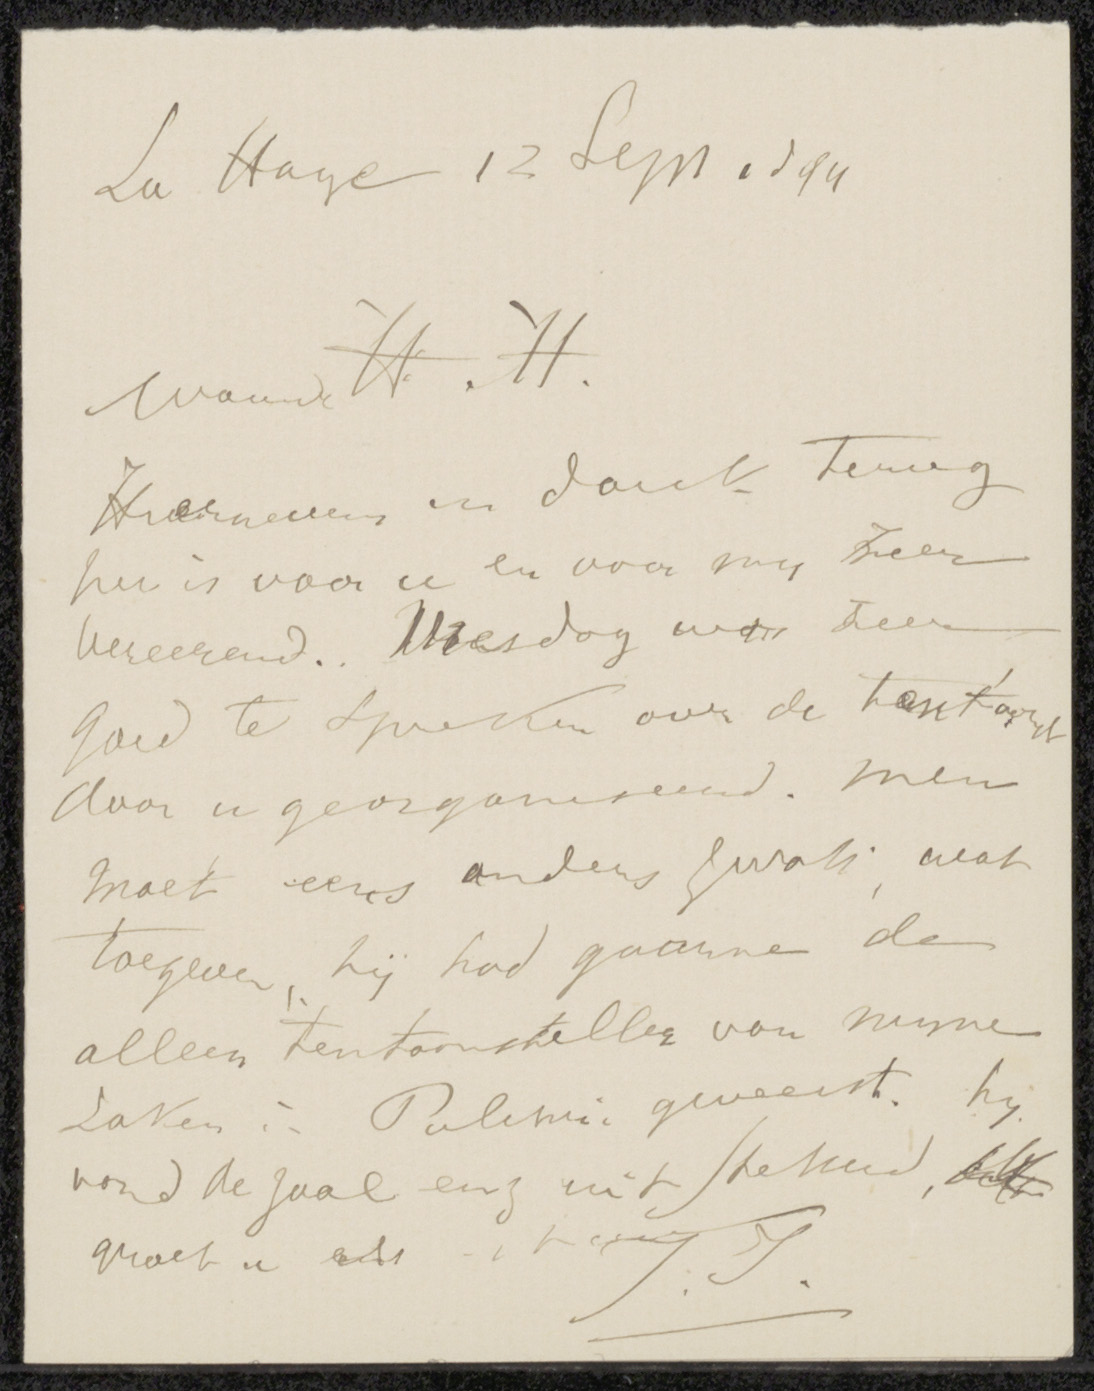 La Haye 12 Sept 1894
Waarde H. H.
Hiernevens in dank terug
het is voor u en voor my zeer
vereerend.. Mesdag was zeer
goed te spreken over de tentoonst
door u georganiseerd. men
moet eens anders zwak, wat
toegeven, hij had gaarne de
alleen tentoonsteller van myne
zaken in Pulchri geweest. hy
vond de zaal enz uitstekend,
groet u
J. T.